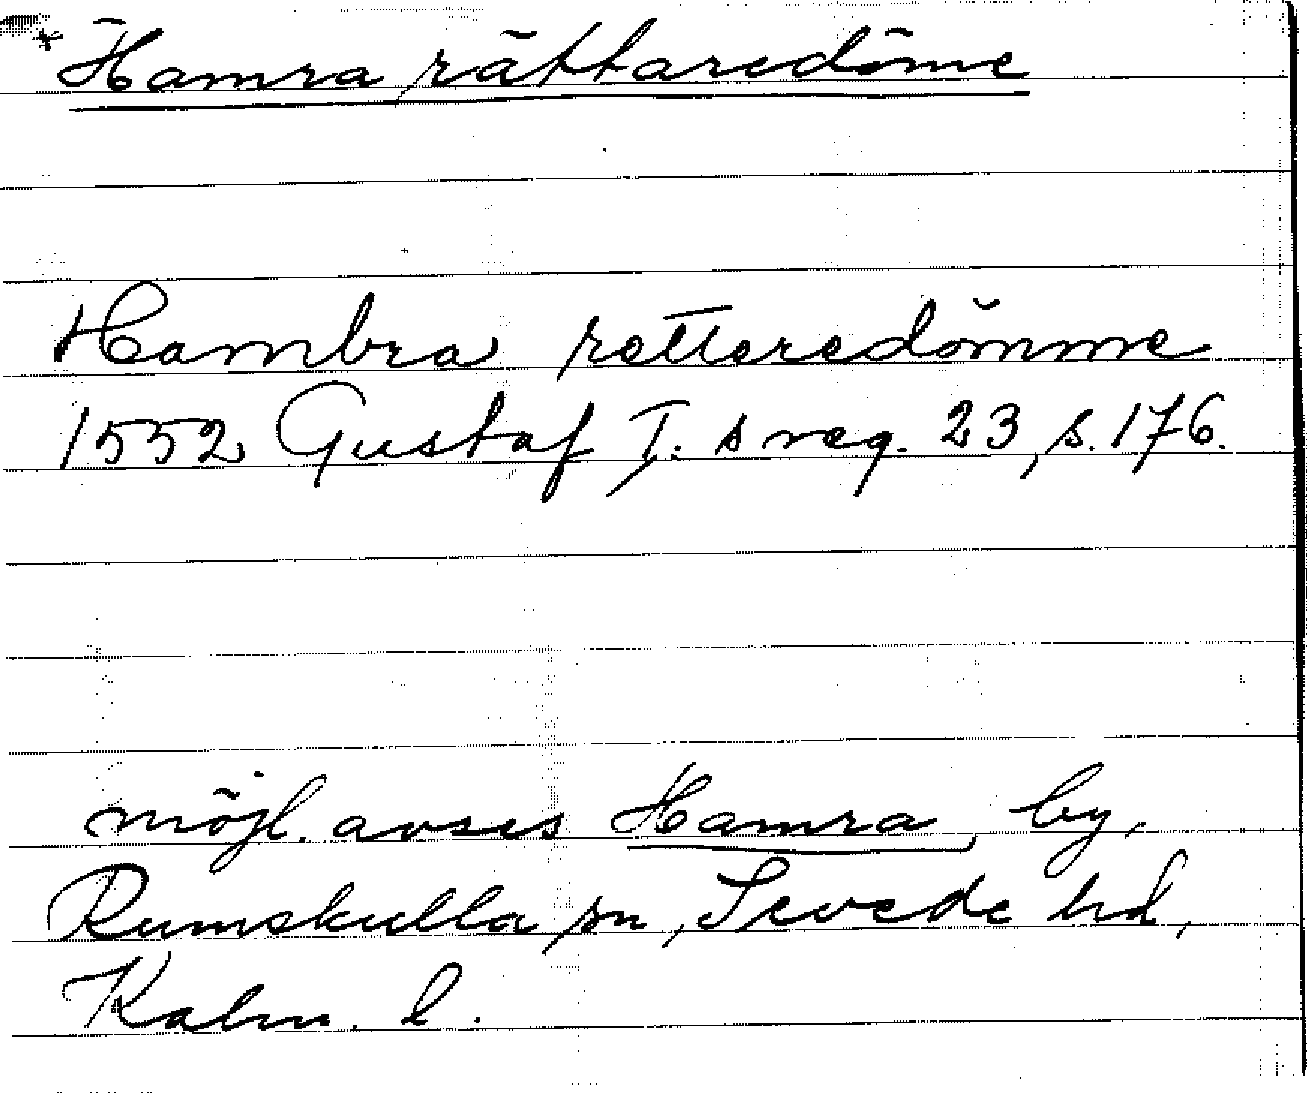 *Hamra rättaredöme
Hambra retteredömme
1552 Gustaf I:s reg. 23, s. 176.
möjl. avses Hamra, by,
Rumskulla sn, Sevede hd,
Kalm. l.